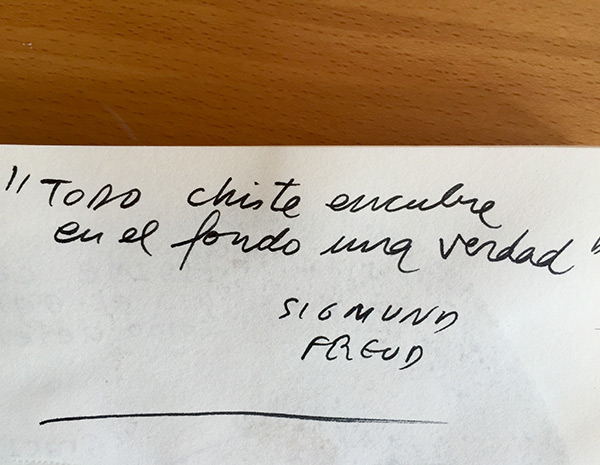 "TODO chiste encubre
en el fondo una verdad"
SIGMUND
FREUD